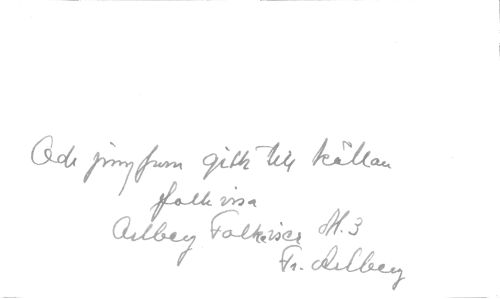 Och jungfrun gick till källan
folkvisa
Arlberg Folkvisor H. 3
Fr. Arlberg